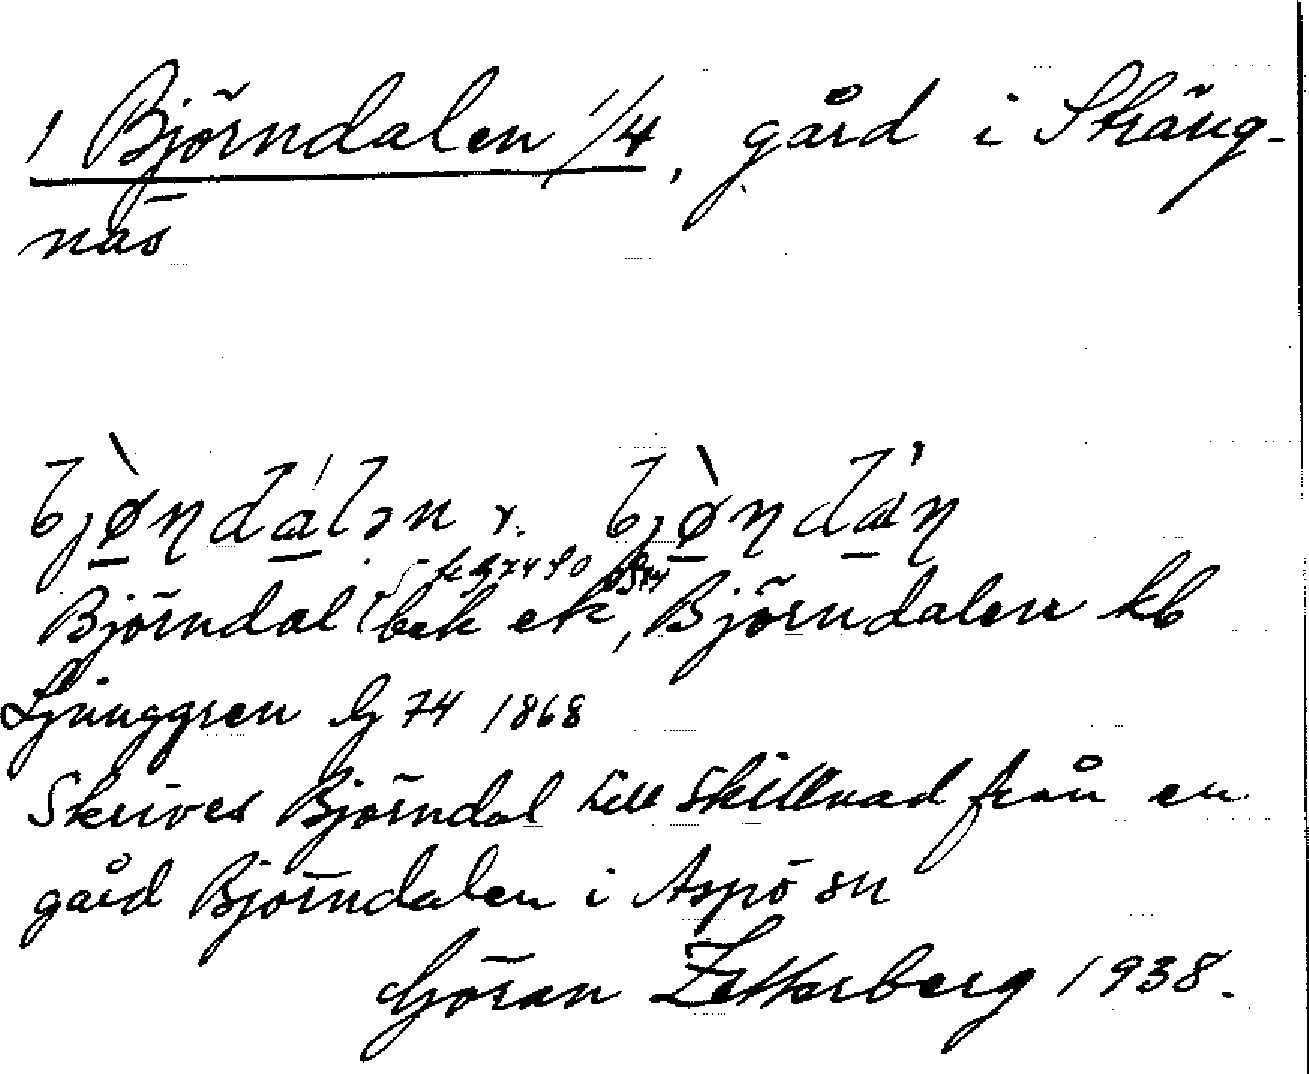 1 Björndalen 1/4, gård i Sträng-
näs
bjø̀ṇdálən r. bjø̀ṇdáṇ
Björndal bek ek, Björndalen kb
Ljunggren lg 74 1868
Skrives Björndal till skillnad från en
gård Björndalen i Aspö sn
Göran Zetterberg 1938.